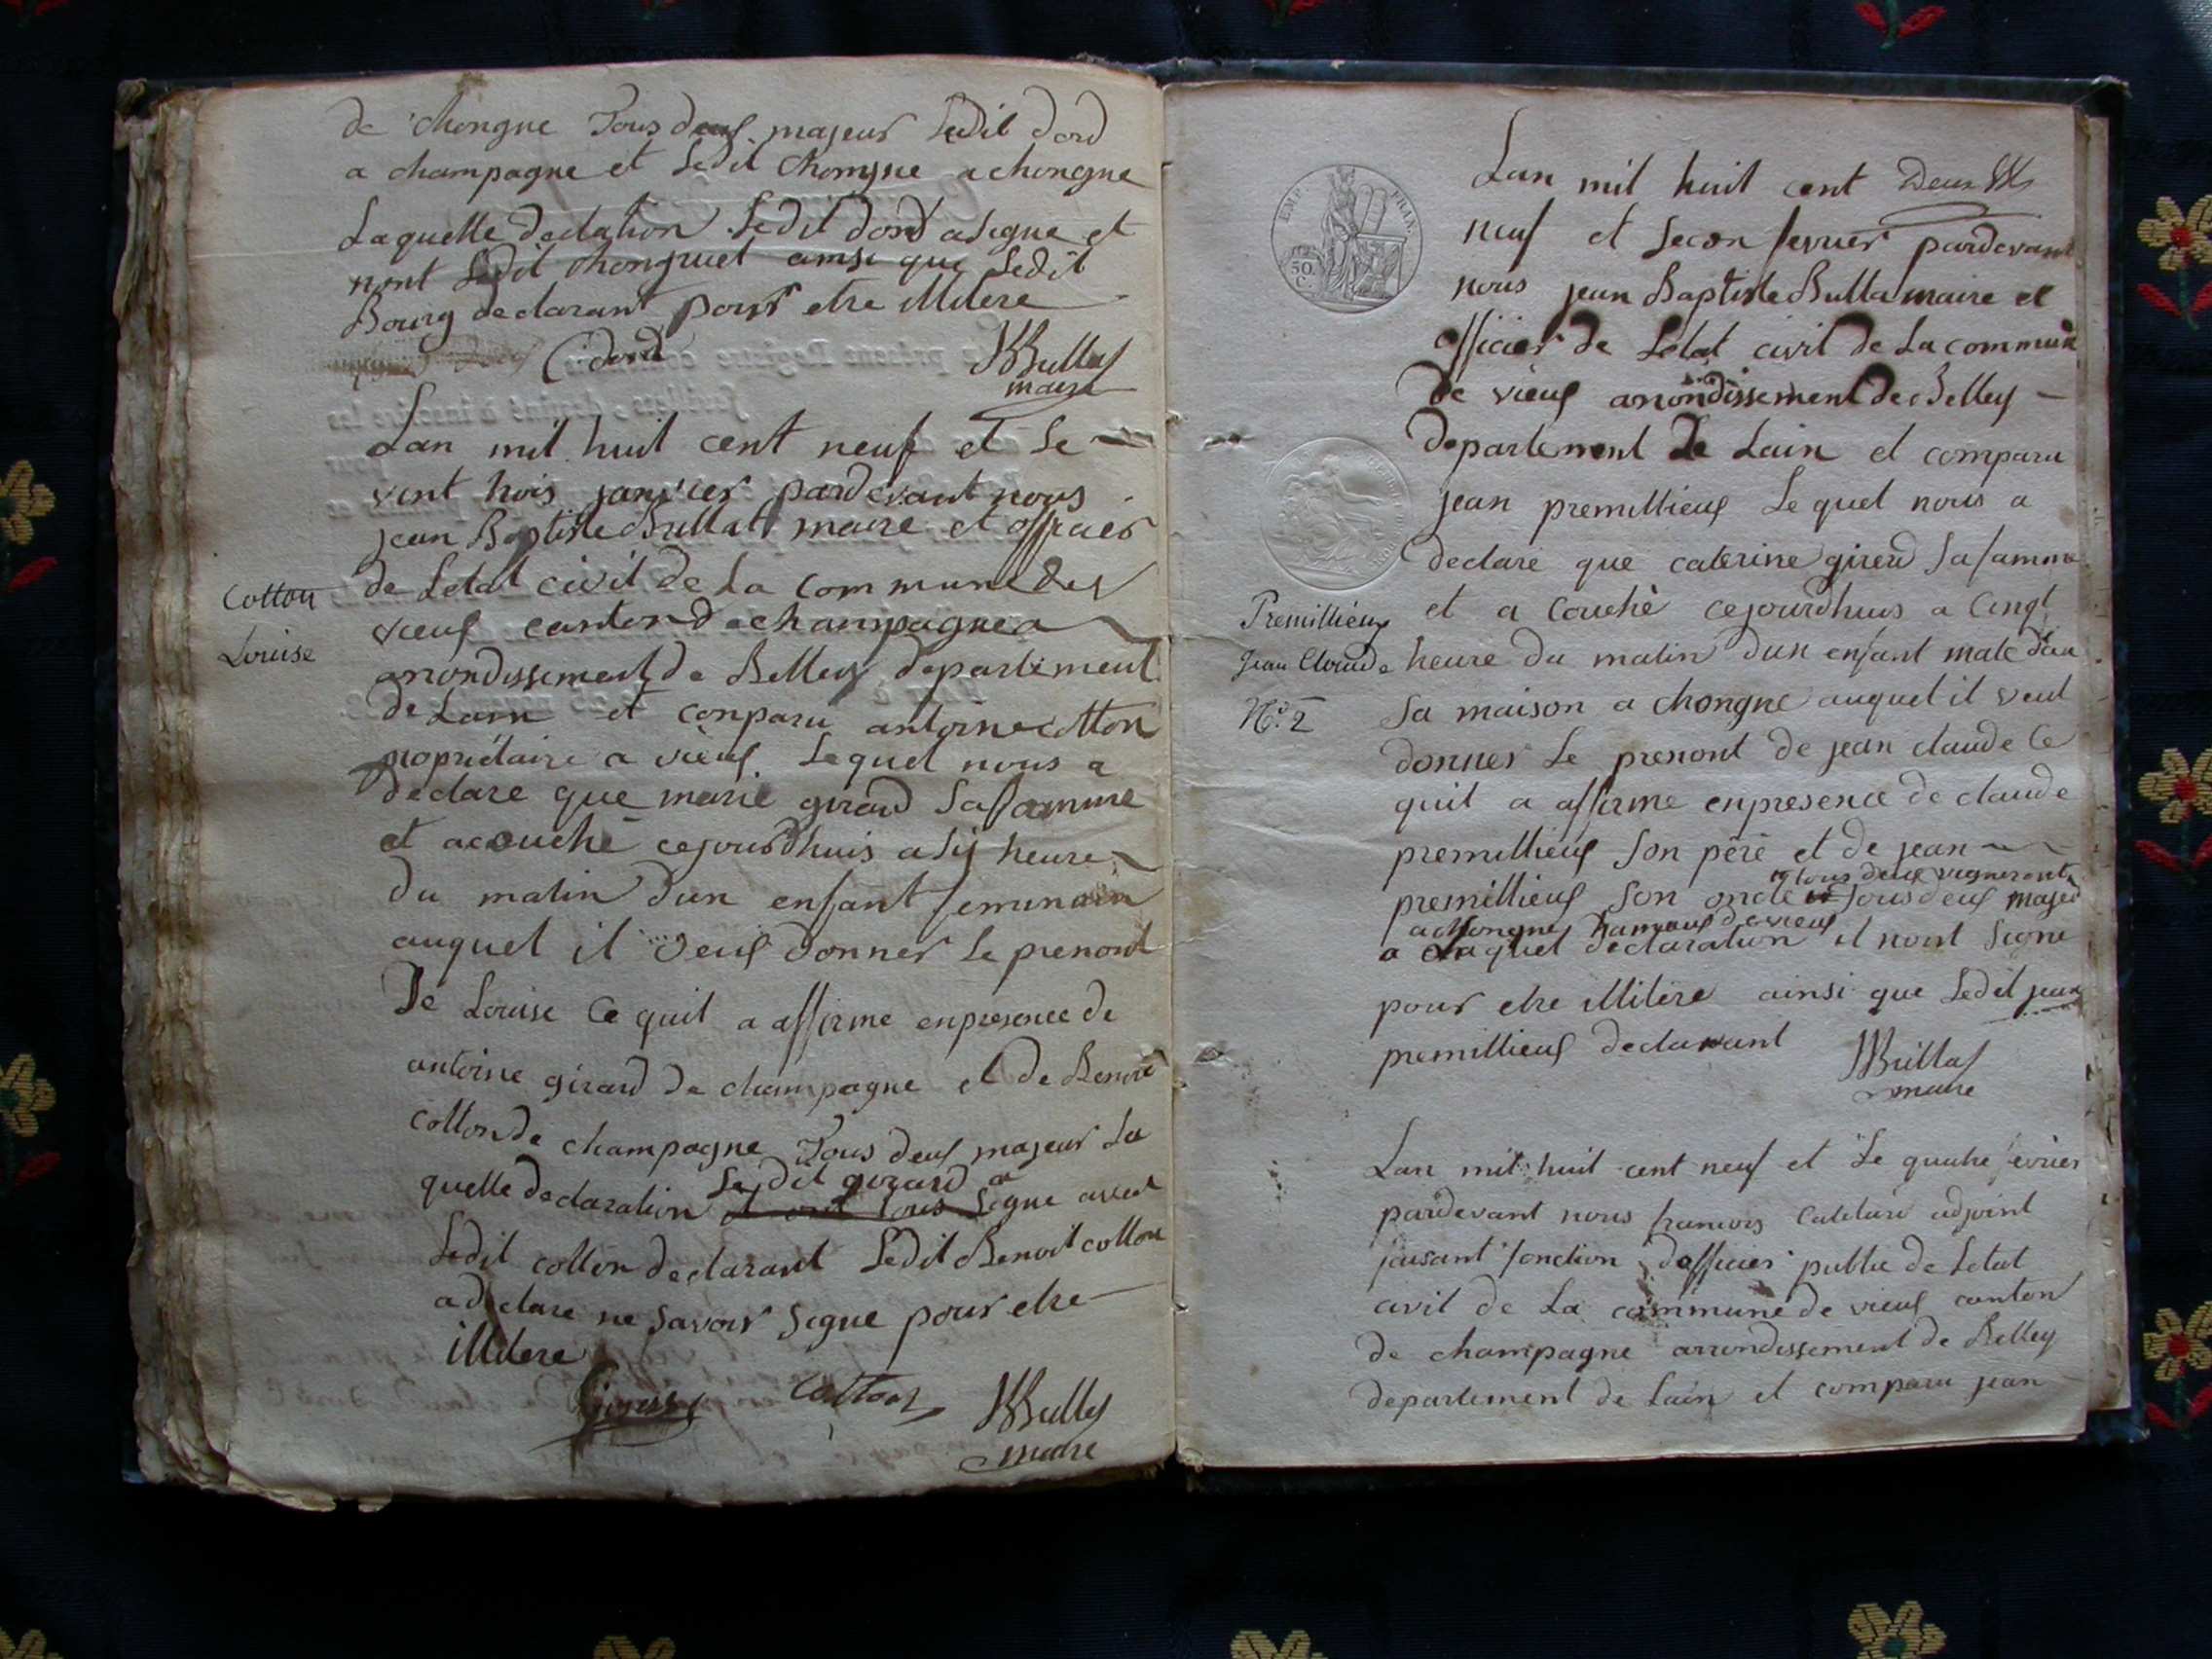 de Chongne Tous deus majeur Ledit dord
a champagne et Ledit Chongne a chongne
Laquelle declation Ledit dord a Segne et
nont Ledit Chongniet ainsi que Ledit
Bourg declarant pour etre illitere
C dord JBBullat
maire
Lan mil huit cent neuf et Le
vint trois janvier pardevant nous
jean Baptiste Bullat maire et officier
de Letat civil de La commune de
vieus canton de champagne
arrondissement de Belley departement
de Lain et conparu antoine cotton
propriétaire a vieus Lequel nous a
declare que marie girard Sa famme
et acouché cejourdhuis a sis heure
du matin dun enfant feminain
auquel il veus donner Le prenont
De Louise Ce quil a affirme enpresence de
antoine girard de champagne et de Benoit
Cotton de champagne Tous deus majeur La
Ledit girard a
quelle declaration et ont tous Segne avect
Ledit cotton declarant Ledit Benoit cotton
a declare ne savoir Segne pour etre
illitere
Cotton JBBullat
maire
Cotton
Louise
EMP. FRAN.
50 C.
Lan mil huit cent Deux
neuf et Secon fevrier pardevant
nous jean Baptiste Bulla maire et
officier de Letat civil de La commune
de vieus arrondissement de Belley
departement de Lain et comparu
jean premillieus Lequel nous a
declare que caterine girerd Sa famme
et a Couché cejourdhuis a Cinqt
heure du matin dun enfant male dan
Sa maison a chongne auquel il veut
donner Le prenont de jean claude Ce
quil a affirme enpresence de claude
premillieus Son pére et de jean
tous deus vigneront
premillieus Son oncle et tous deus majeur
a chongne hameaus de vieus
a Laquel declaration il nont Segne
pour etre illitére ainsi que Ledit jean
premillieus declarant
JBBullat
maire
Premillieux
Jean Claude
No. 2
Lan mil huit cent neuf et Le quatre fevrier
pardevant nous francois adjoint
faisant fonction dofficier public de Letat
civil de La commune de vieus canton
de champagne arrondissement de Belley
departement de Lain et comparu jean